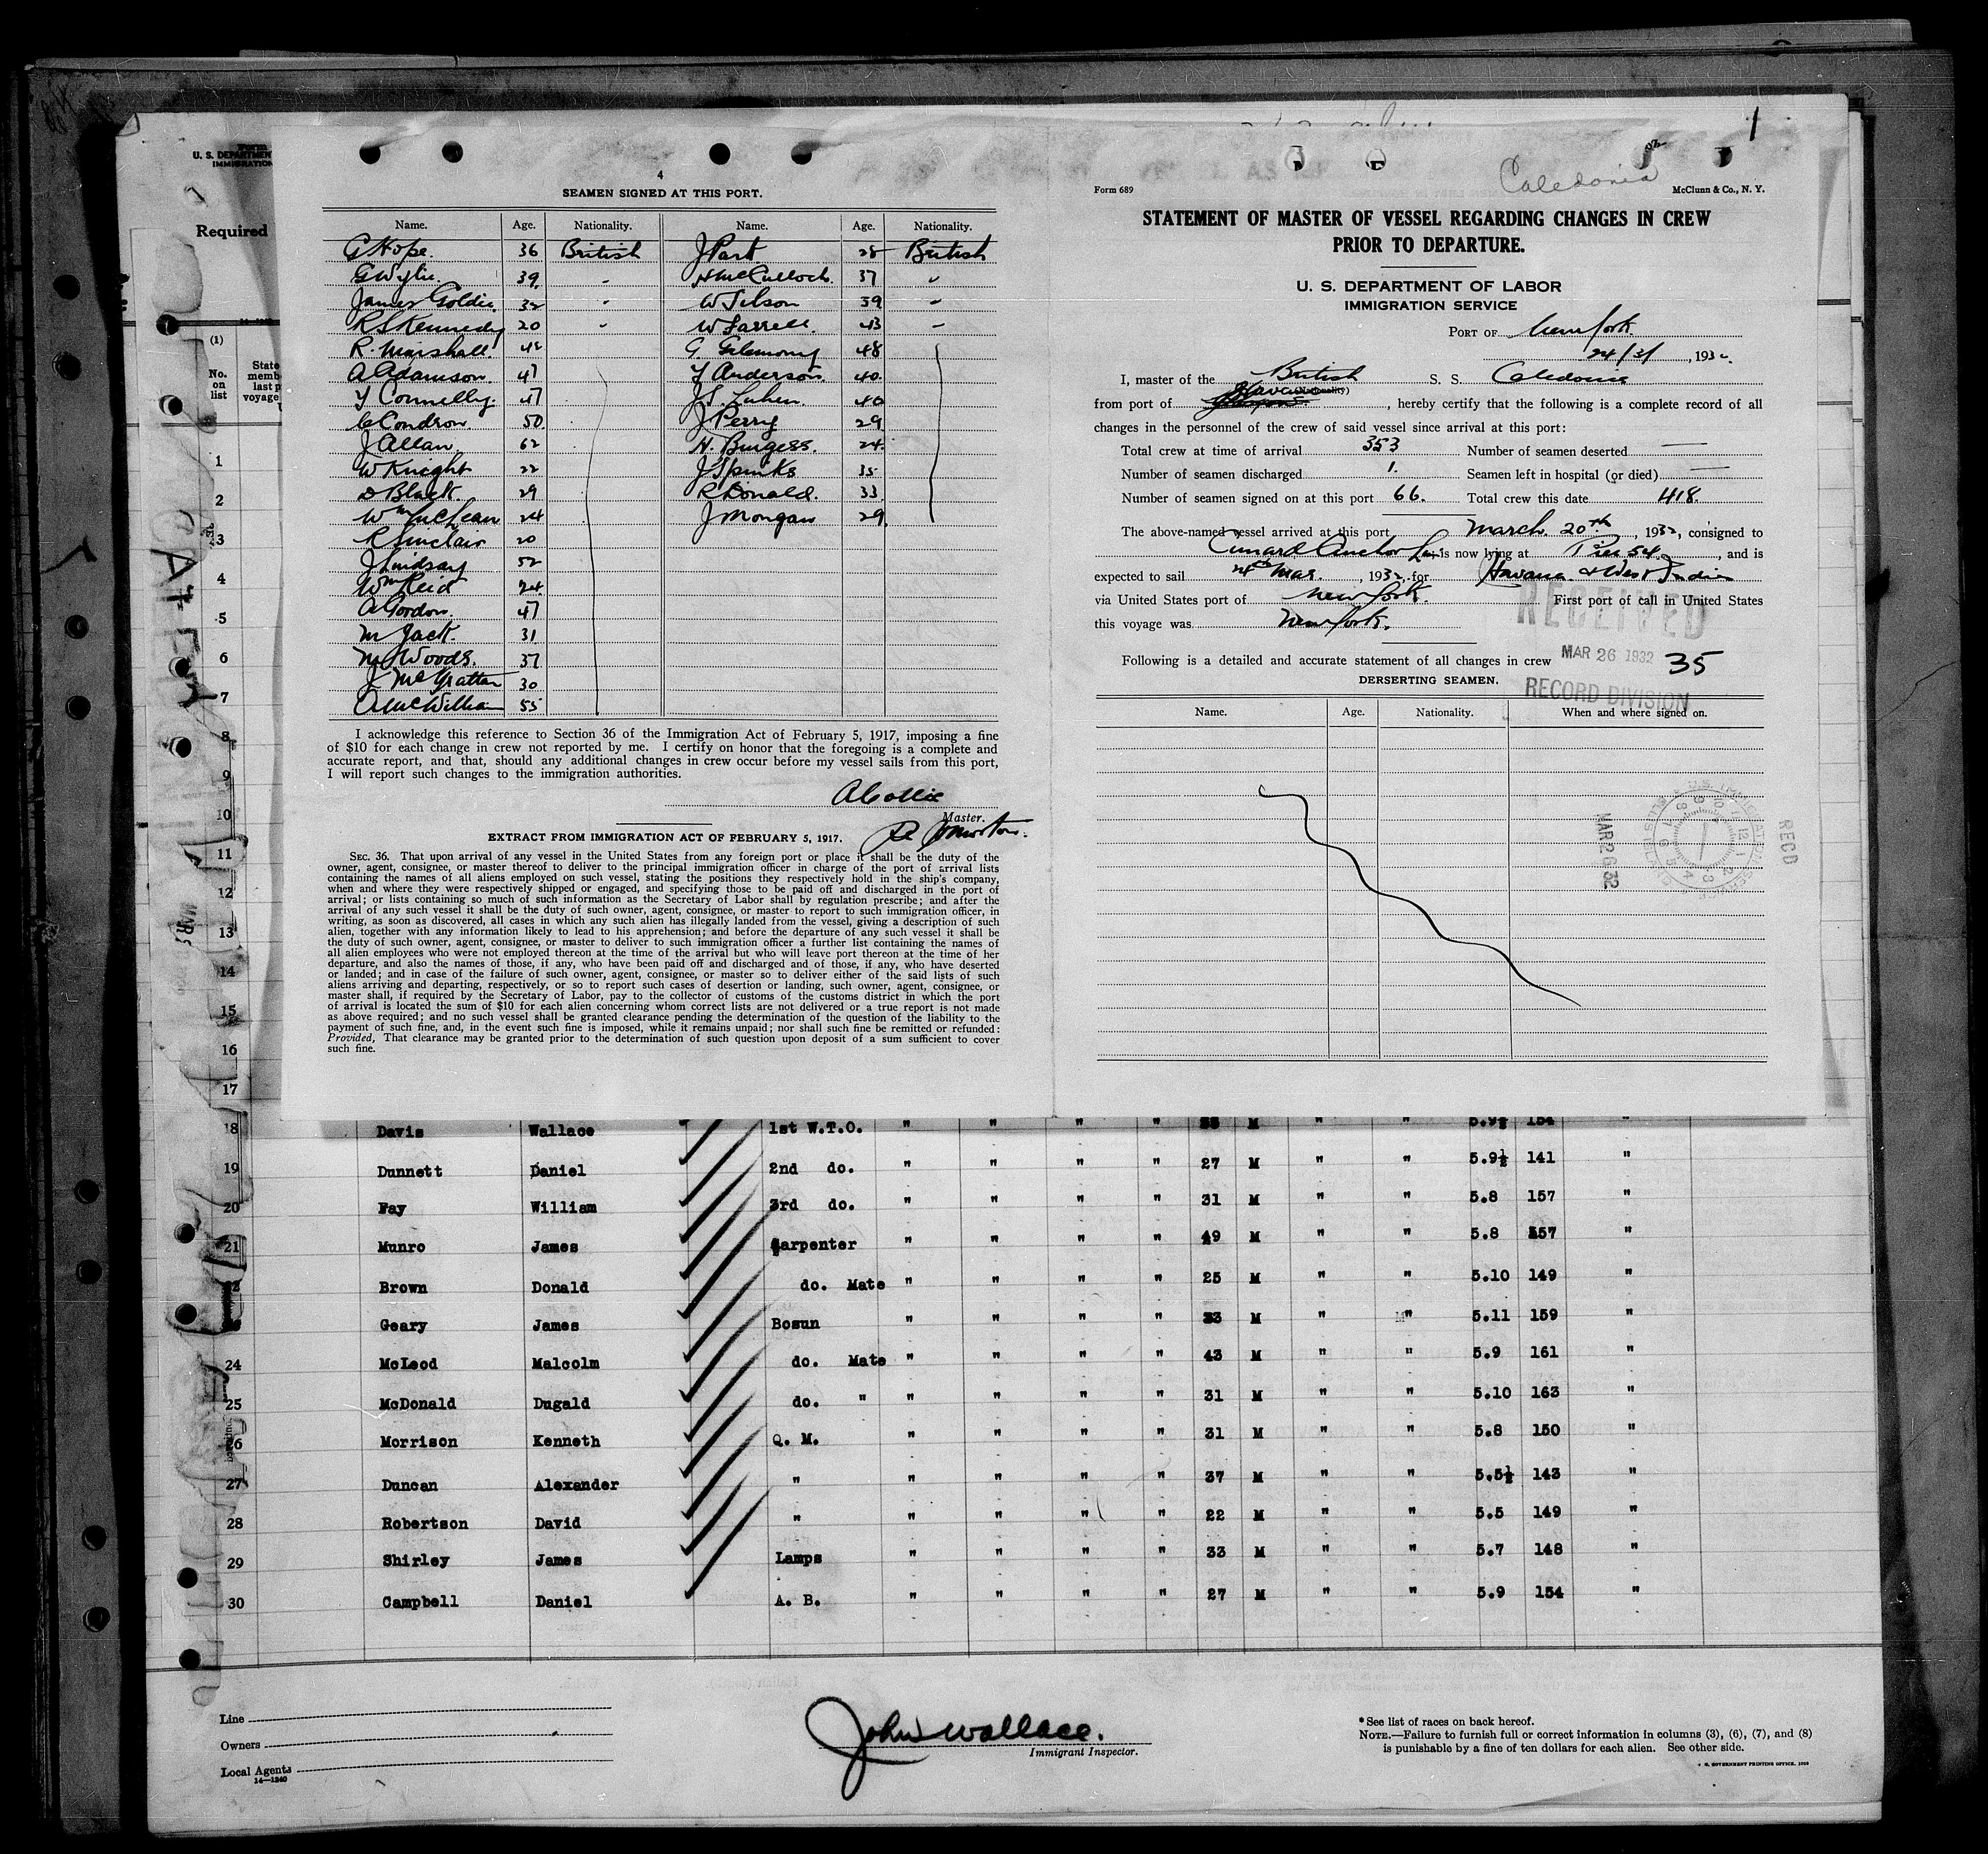 4
SEAMEN SIGNED AT THIS PORT.
Name. Age. Nationality. Name. Age. Nationality.
G Hope. 36 British J Park 28 British
G Wylie. 39. " H McCulloch. 37 "
James Goldie. 32 " W Tilson 39 "
R S Kennedy 20 " W Farrell. 43 "
R. Marshall. 42 G. 48
A Adamson. 47 Y Anderson. 40.
Y Connelly. 47 J. 40
C Condron 50 J Perry 29
J Allan 62 H. Burgess. 24
W Knight 22 J Spinks 35
D Black 29 R Donald. 33
Wm McLean 24 J Morgan 29.
R Sinclair 20
J Lindsay 52
Wm Reid 24
A Gordon. 47
M Jack. 31
M Woods. 37
J McGrattan 30
A McWilliam 55
I acknowledge this reference to Section 36 of the Immigration Act of February 5, 1917, imposing a fine
of $10 for each change in crew not reported by me. I certify on honor that the foregoing is a complete and
accurate report, and that, should any additional changes in crew occur before my vessel sails from this port,
I will report such changes to the immigration authorities.
A Collie
Master.
EXTRACT FROM IMMIGRATION ACT OF FEBRUARY 5, 1917.
SEC. 36. That upon arrival of any vessel in the United States from any foreign port or place it shall be the duty of the
owner, agent, consignee, or master thereof to deliver to the principal immigration officer in charge of the port of arrival lists
containing the names of all aliens employed on such vessel, stating the positions they respectively hold in the ship's company,
when and where they were respectively shipped or engaged, and specifying those to be paid off and discharged in the port of
arrival; or lists containing so much of such information as the Secretary of Labor shall by regulation prescribe; and after the
arrival of any such vessel it shall be the duty of such owner, agent, consignee, or master to report to such immigration officer, in
writing, as soon as discovered, all cases in which any such alien has illegally landed from the vessel, giving a description of such
alien, together with any information likely to lead to his apprehension; and before the departure of any such vessel it shall be
the duty of such owner, agent, consignee, or master to deliver to such immigration officer a further list containing the names of
all alien employees who were not employed thereon at the time of the arrival but who will leave port thereon at the time of her
departure, and also the names of those, if any, who have been paid off and discharged and of those, if any, who have deserted
or landed; and in case of the failure of such owner, agent, consignee, or master so to deliver either of the said lists of such
aliens arriving and departing, respectively, or so to report such cases of desertion or landing, such owner, agent, consignee, or
master shall, if required by the Secretary of Labor, pay to the collector of customs of the customs district in which the port
of arrival is located the sum of $10 for each alien concerning whom correct lists are not delivered or a true report is not made
as above required; and no such vessel shall be granted clearance pending the determination of the question of the liability to the
payment of such fine, and, in the event such fine is imposed, while it remains unpaid; nor shall such fine be remitted or refunded:
Provided, That clearance may be granted prior to the determination of such question upon deposit of a sum sufficient to cover
such fine.
1
Caledonia
Form 689 McClunn & Co., N. Y.
STATEMENT OF MASTER OF VESSEL REGARDING CHANGES IN CREW
PRIOR TO DEPARTURE.
U. S. DEPARTMENT OF LABOR
IMMIGRATION SERVICE
PORT OF New York.
24/3/, 1932.
I, master of the British S. S. Caledonia
(Nationality)
from port of Havana, hereby certify that the following is a complete record of all
changes in the personnel of the crew of said vessel since arrival at this port:
Total crew at time of arrival 353 Number of seamen deserted
Number of seamen discharged 1. Seamen left in hospital (or died)
Number of seamen signed on at this port 66. Total crew this date 418.
The above-named vessel arrived at this port March. 20th, 1932, consigned to
Cunard Anchor Line is now lying at Pier 54, and is
expected to sail 24th Mar., 1932, for Havana & West Indies
via United States port of New York. First port of call in United States
this voyage was New York.
RECEIVED
MAR 26 1932
RECORD DIVISION
Following is a detailed and accurate statement of all changes in crew 35
DERSERTING SEAMEN.
Name. Age. Nationality. When and where signed on.
MAR 26 32
REC'D
U. S. DEPARTMENT
IMMIGRATION
Required
(1)
No. on list
1
2
3
4
5
6
7
8
9
10
11
12
13
14
15
16
17
18 Davis Wallace 1st W.T.O. " " " " M " " 154 "
19 Dunnett Daniel 2nd do. " " " " 27 M " " 5.9½ 141 "
20 Fay William 3rd do. " " " " 31 M " " 5.8 157 "
21 Munro James Carpenter " " " " 49 M " " 5.8 157 "
22 Brown Donald do. Mate " " " " 25 M " " 5.10 149 "
Geary James Bosun " " " " 33 M " " 5.11 159 "
24 McLeod Malcolm do. Mate " " " " 43 M " " 5.9 161 "
25 McDonald Dugald do. " " " " " 31 M " " 5.10 163 "
26 Morrison Kenneth Q. M. " " " " 31 M " " 5.8 150 "
27 Duncan Alexander " " " " " 37 M " " 5.5½ 143 "
28 Robertson David " " " " " 22 M " " 5.5 149 "
29 Shirley James Lamps " " " " 33 M " " 5.7 148 "
30 Campbell Daniel A. B. " " " " 27 M " " 5.9 154 "
Line
Owners
Local Agents
14—1240
John Wallace.
Immigrant Inspector.
* See list of races on back hereof.
NOTE.—Failure to furnish full or correct information in columns (3), (6), (7), and (8)
is punishable by a fine of ten dollars for each alien. See other side.
U. S. GOVERNMENT PRINTING OFFICE.